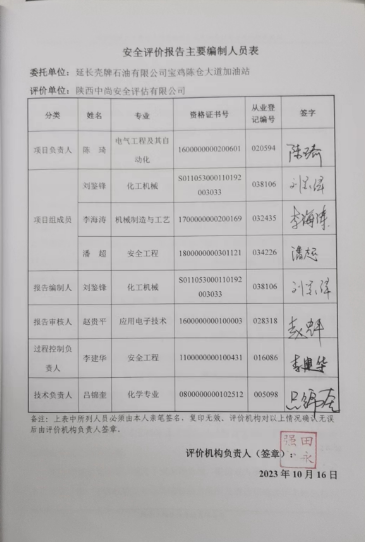 安全评价报告主要编制人员表
委托单位：延长壳牌石油有限公司宝鸡陈仓大道加油站
评价单位：陕西中尚安全评估有限公司
分类 姓名 专业 资格证书号 从业登记编号 签字
项目负责人 陈琦 电气工程及其自动化 1600000000200601 020594 陈琦
项目组成员 刘鉴锋 化工机械 S011053000110192003033 038106
李海涛 机械制造与工艺 1700000000200169 032435 李海涛
潘超 安全工程 1800000000301121 034226 潘超
报告编制人 刘鉴锋 化工机械 S011053000110192003033 038106
报告审核人 赵贵平 应用电子技术 1600000000100003 028318
过程控制负责人 李建华 安全工程 1100000000100431 016086 李建华
技术负责人 吕锦奎 化学专业 0800000000102512 005098
备注：上表中所列人员必须由本人亲笔签名，复印无效。评价机构对以上情况确认无误
后由评价机构负责人签章。
评价机构负责人（签章）：
田永强
2023 年 10 月 16 日